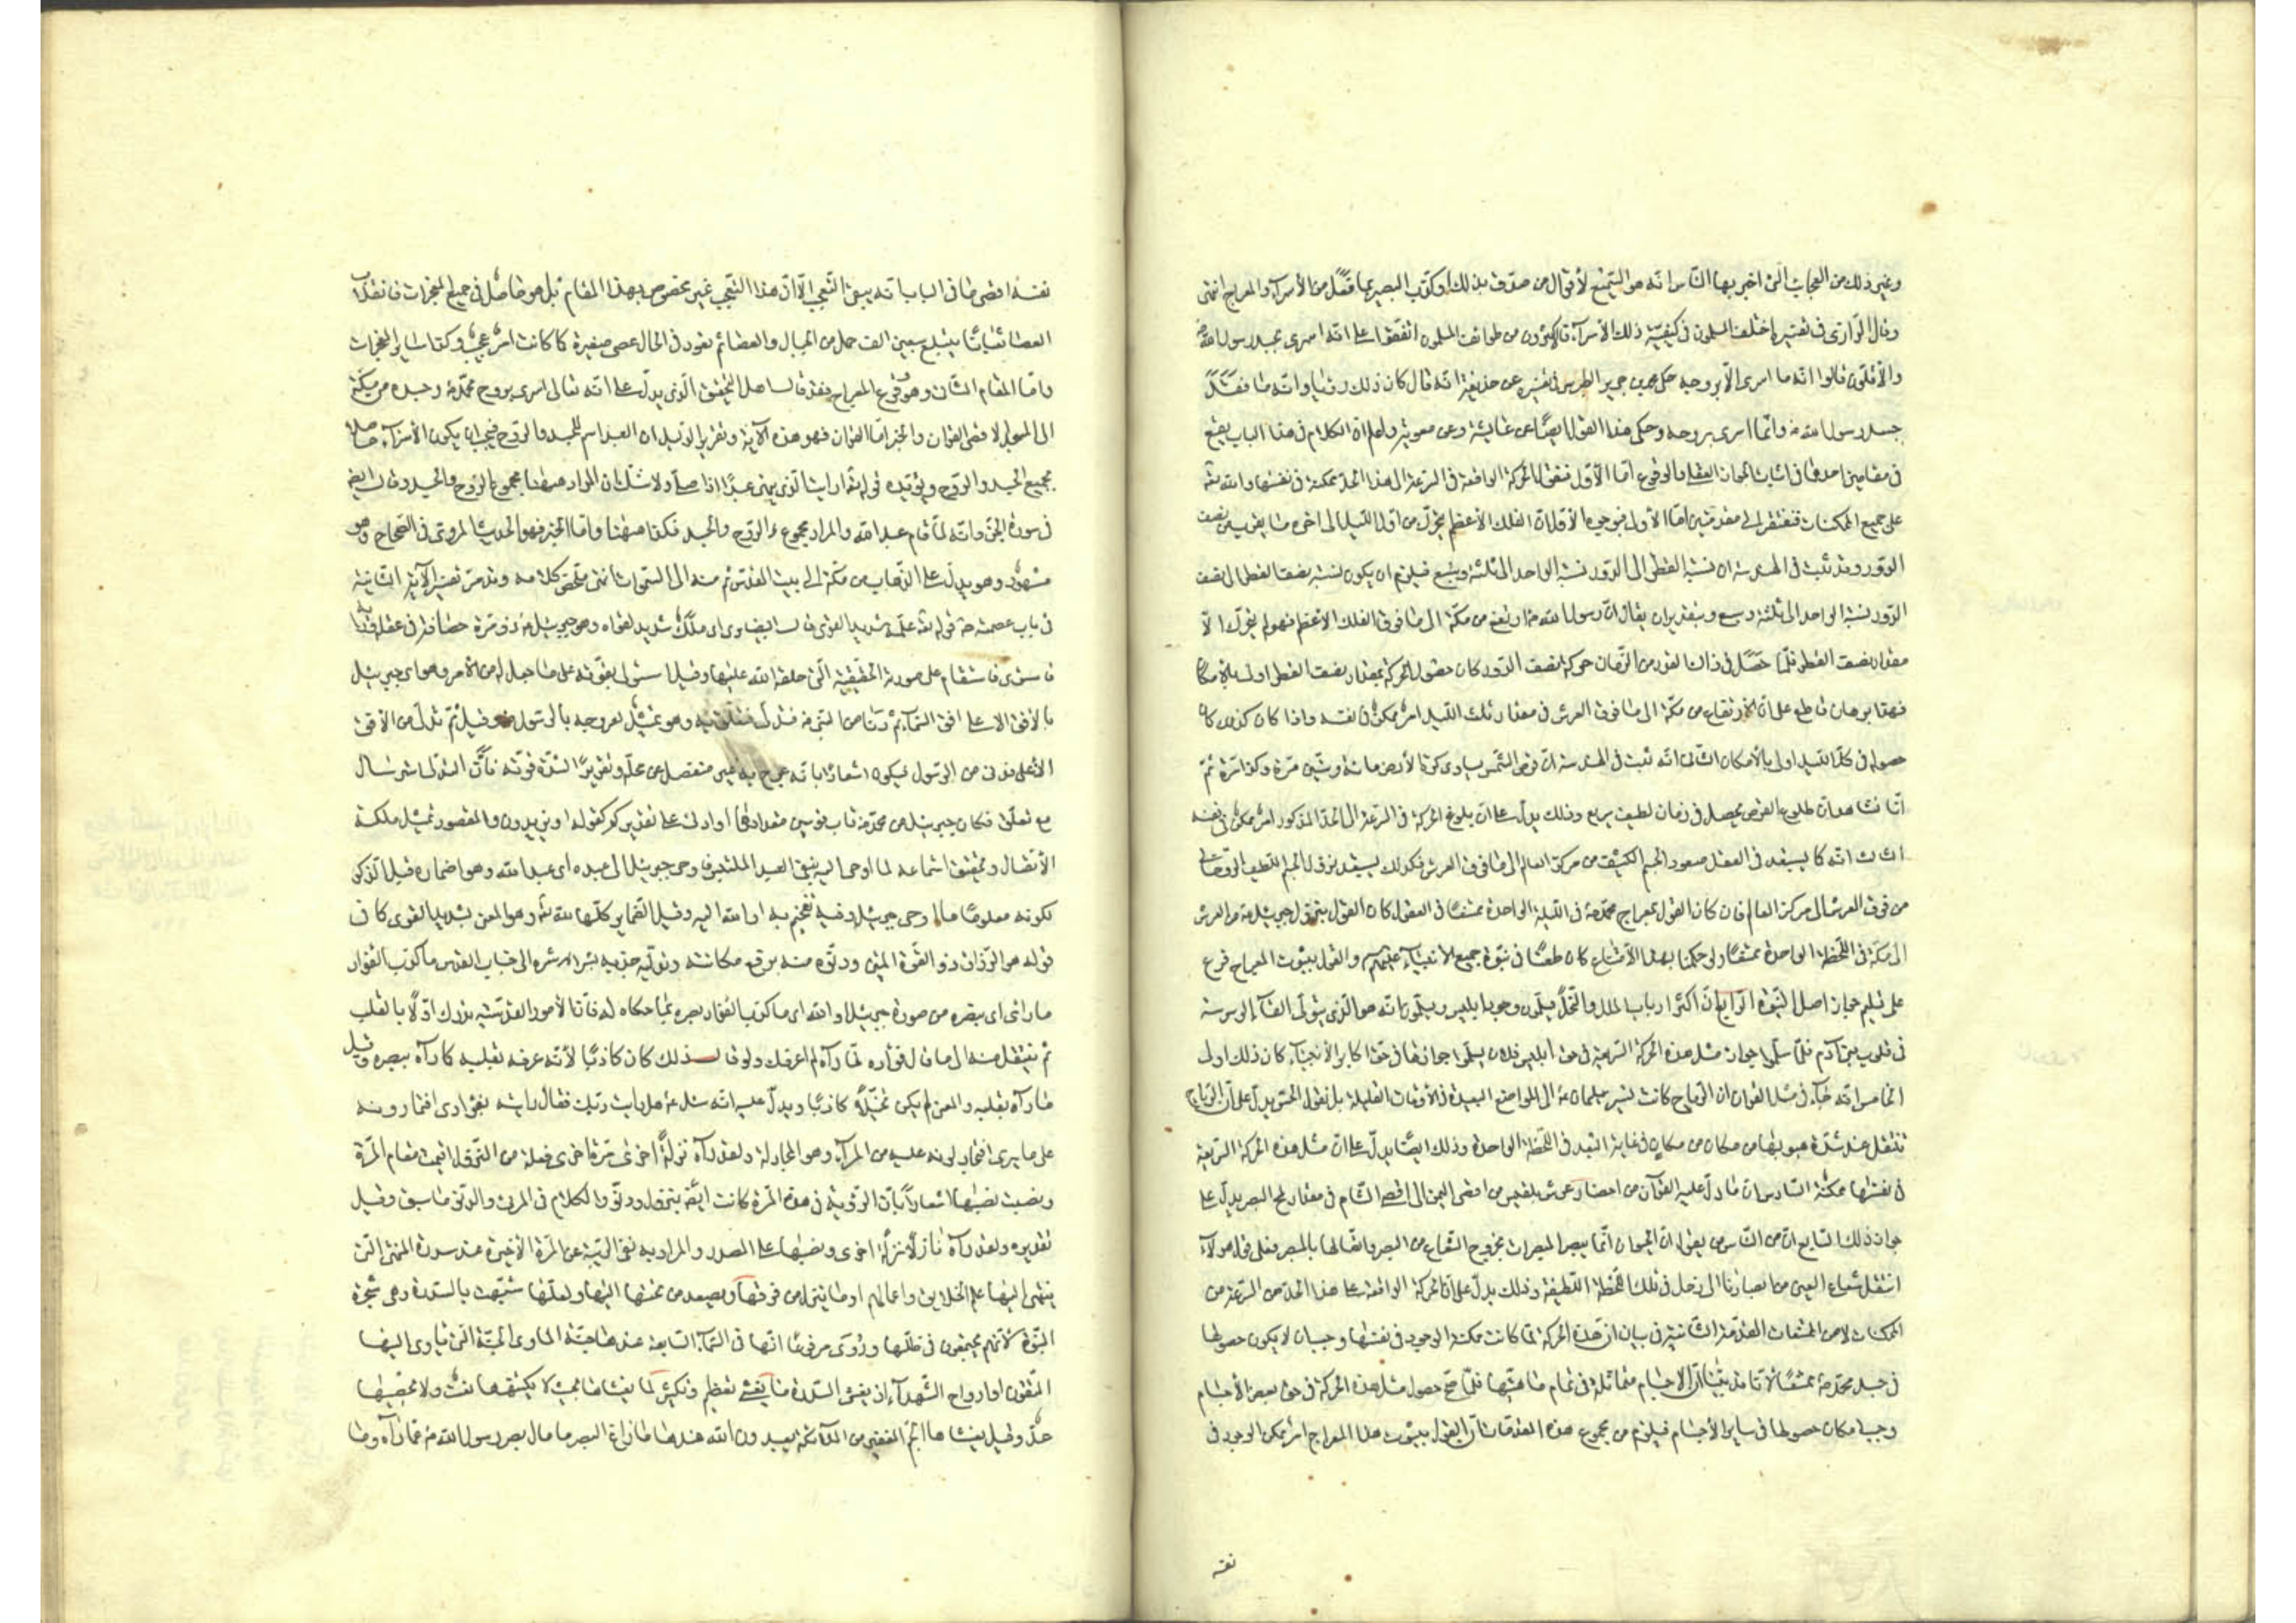 وغير ذلك من العجايب التى اخبر بها الناس انه هو الممتنع لأقوال من صدوق بذلك وكذب البصير بما فصّل من الأسراء والمعراج انتهى
وقال الرازى فى تفسيره اختلف المسلمون فى كيفيّة ذلك الأسراء فالاكثرون من طوائف المسلمين اتفقوا على انه اسرى بجسد رسول الله
والأقلّون قالوا انه ما اسرى الّا بروحه حكى محمد بن جرير الطبرى فى تفسيره عن حذيفة انه قال كان ذلك رؤيا وانه ما فقد
جسد رسول الله وانّما اسرى بروحه وحكى هذا القول ايضًا عن عايشة وعن معوية واعلم ان الكلام فى هذا الباب يقع
فى مقامين احدهما فى اثبات الجواز العقلى والوقوع امّا الأوّل فنقول الحركة الواقعة فى السرعة الى هذا الحدّ ممكنة فى نفسها والله تعالى
على جميع الممكنات فنفتقر الى مقدمتين امّا الأولى فبوجوه الأول ان الفلك الأعظم يتحرّك من اوّل الليل الى اخره ما يقرب من نصف
الدور وقد ثبت فى الهندسة ان نسبة القطر الى الدور نسبة الواحد الى ثلثة وسبع فيلزم ان يكون نسبة نصف القطر الى نصف
الدور نسبة الواحد الى ثلثة وسبع وبتقدير ان يقال انّ رسول الله ارتفع من مكّة الى ما فوق الفلك الاعظم فهو لم يتحرّك الّا
مقدار نصف القطر فلمّا حصل فى ذلك القدر من الزمان حركة نصف الدور كان حصول الحركة بمقدار نصف القطر اولى بالامكان
فهذا برهان قاطع على ان الارتقاء من مكّة الى ما فوق العرش فى مقدار ثلث الليل امر ممكن فى نفسه واذا كان كذلك كان
حصوله فى كلّ الليل اولى بالأمكان الثانى انه ثبت فى الهندسة انّ قرص الشمس يساوى كرة الأرض مائة وستين مرة وكذا مرة ثمّ
انّا نشاهد انّ طلوع القرص يحصل فى زمان لطيف سريع وذلك يدلّ على ان بلوغ الحركة فى السرعة الى الحدّ المذكور امر ممكن فى نفسه
الثالث انه كما يستبعد فى العقل صعود الجسم الكثيف من مركز العالم الى ما فوق العرش فكذلك يستبعد نزول الجسم اللطيف الروحانى
من فوق العرش الى مركز العالم فان كان القول بمعراج محمّد فى الليلة الواحدة ممتنعًا فى العقول كان القول بنزول جبرئيل من العرش
الى مكّة فى اللحظة الواحدة ممتنعًا ولو حكمنا بهذا الأمتناع كان طعنًا فى نبوّة جميع الأنبياء عليهم والقول بثبوت المعراج فرع
على تسليم جواز اصل النبوّة الرابع انّ اكثر ارباب الملل والنحل يسلّمون وجود ابليس ويسلّمون انه هو الّذى يتولّى القاء الوسوسة
فى قلوب بنى آدم فلمّا سلّموا جواز مثل هذه الحركة السريعة فى حقّ ابليس فلان يسلّموا جوازها فى حقّ اكابر الأنبياء كان ذلك اولى
الخامس انه جاء فى القران ان الرياح كانت تسير بسليمان الى المواضع البعيدة فى الأوقات القليلة بل نقول الحسّ يدلّ على انّ الرياح
تنتقل عند شدّة هبوبها من مكان من مكان فى غاية البعد فى اللحظة الواحدة وذلك ايضًا يدلّ على انّ مثل هذه الحركة السريعة
فى نفسها ممكنة السادس انّ ما دلّ عليه القرآن من احضار عرش بلقيس من اقصى اليمن الى اقصى الشام فى مقدار لمح البصر يدلّ على
جواز ذلك السابع انّ من الناس من يقول انّ الحيوان انّما يبصر المبصرات بخروج الشعاع من البصر واتّصالها بالمبصر فعلى قول هؤلاء
انتقل شعاع العين من ابصارنا الى زحل فى تلك اللحظة اللطيفة وذلك يدلّ على انّ الحركة الواقعة على هذا الحدّ من السرعة من
الممكنات لا من الممتنعات المقدّمة الثانية فى بيان ان هذه الحركة لمّا كانت ممكنة الوجود فى نفسها وجب ان لا يكون حصولها
فى جسد محمّد ممتنعًا لأنّا قد بيّنّا انّ الاجسام متماثلة فى تمام ماهيّتها فلمّا صحّ حصول مثل هذه الحركة فى حقّ بعض الأجسام
وجب امكان حصولها فى ساير الأجسام فيلزم من مجموع هذه المقدّمات انّ القول بثبوت هذا المعراج امر ممكن الوجود فى
نفسه
نفسه اقصى ما فى الباب انه يبقى التعجب الّا انّ هذا التعجب غير مخصوص بهذا المقام بل هو حاصل فى جميع المعجزات فانقلاب
العصا ثعبانًا يبتلع سبعين الف حمل من الحبال والعصا ثم يعود فى الحال عصى صغيرة كما كانت امر عجيب وكذا ساير المعجزات
وامّا المقام الثانى وهو وقوع المعراج فقد قال اهل التحقيق الّذى يدلّ على انه تعالى اسرى بروح محمّد وجسده من مكّة
الى المسجد الاقصى القران والخبر امّا القران فهو هذه الآية وتقرير الدليل ان العبد اسم للجسد والروح فيجب ان يكون الأسراء حاصلا
بجميع الجسد والروح ويؤيده قوله تعالى ارايت الّذى ينهى عبدًا اذا صلّى ولا شكّ ان المراد ههنا مجموع الروح والجسد وقال ايضًا
فى سورة الجنّ وانه لمّا قام عبد الله والمراد مجموع الروح والجسد فكذا ههنا وامّا الخبر فهو الحديث المروى فى الصحاح وهو
مشهور وهو يدلّ على الذهاب من مكّة الى بيت المقدس ثم منه الى السموات انتهى ملخّص كلامه وقد مرّ تفسير الآية الثانية
فى باب عصمته قوله تعالى علّمه شديد القوى قال البيضاوى اى ملك شديد قواه وهو جبرئيل ذو مرة حصافة فى عقله ورأيه
فاستوى فاستقام على صورته الحقيقية الّتى خلقه الله عليها وقيل استولى بقوّته على ما جعل له من الأمر وهو اى جبرئيل
بالأفق الاعلى افق السماء ثم دنا من النبى فتدلى فتعلّق به وهو تمثيل لعروجه بالرسول وقيل ثمّ تدلى من الأفق
الأعلى فدنى من الرسول فيكون اشعارًا بانه عرج به غير منفصل عن محلّه وتقريرًا لشدّة قوّته فانّ التدلى استرسال
مع تعلّق فكان جبرئيل من محمّد قاب قوسين مقدارهما او ادنى على تقديركم كقوله او يزيدون والمقصود تمثيل ملكة
الأتصال وتحقيق استماعه لما اوحى اليه بنفى البعد الملتبس فاوحى جبرئيل الى عبده اى عبد الله وهو اضماره قبل الذكر
لكونه معلومًا ما اوحى جبرئيل وفيه تفخيم به او الله اليه وقيل الضماير كلّها لله تعالى وهو المعنى بشديد القوى كما فى
قوله هو الرزاق ذو القوّة المتين ودنوّه منه برفع مكانته وتدلّيه جذبه بشراشره الى جناب القدس ما كذب الفؤاد
ما راى اى ببصره من صورة جبرئيل او الله اى ما كذب الفؤاد بصره بما حكاه له فانّ الأمور القدسيّة يدرك اوّلًا بالقلب
ثم ينتقل منه الى البصر او ما قال فؤاده لمّا رآه لم اعرفك ولو قال ذلك كان كاذبًا لأنّه عرفه بقلبه كما رآه ببصره وقيل
ما رآه بقلبه والمعنى لم يكن تخيّلًا كاذبًا ويدلّ عليه انه سئل هل رايت ربّك فقال رايته بفؤادى افتمارونه
على ما يرى افتجادلونه عليه من المراء وهو المجادلة ولقد رآه نزلة اخرى مرّة اخرى فعلة من النزول اقيمت مقام المرّة
ونصبت نصبها اشعارًا بانّ الرؤية فى هذه المرّة كانت ايضًا بنزول ودنوّ والكلام فى المرئى والدنوّ ما سبق وقيل
تقديره ولقد رآه نازلًا نزلة اخرى ونصبها على المصدر والمراد به نفى الريبة عن المرّة الأخيرة عند سدرة المنتهى الّتى
ينتهى اليها علم الخلايق واعمالهم او ما ينزل من فوقها ويصعد من تحتها اليها ولعلّها شبّهت بالسدرة وهى شجرة
النبق لأنّهم يجتمعون فى ظلّها وروى مرفوعًا انّها فى السماء السابعة عندها جنّة الماوى الجنّة الّتى ياوى اليها
المتّقون او ارواح الشهداء اذ يغشى السدرة ما يغشى تعظيم وتكثير لما يغشاها بحيث لا يكتنهها نعت ولا يحصيها
عدّ وقيل يغشاها الجمّ الغفير من الملائكة يعبدون الله عندها ما زاغ البصر ما مال بصر رسول الله عمّا رآه وما